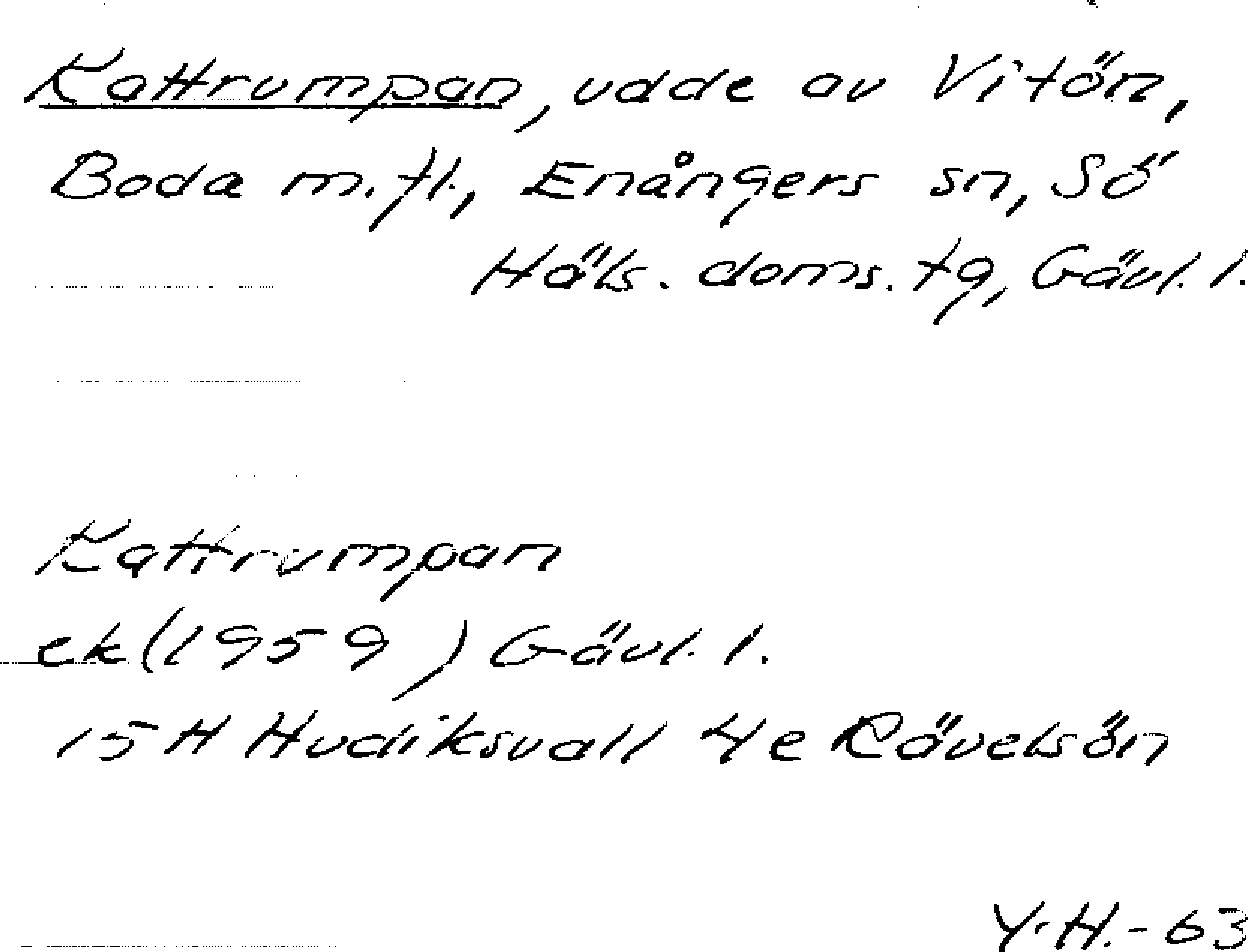 Kattrumpan, udde av Vitön,
Boda m.fl., Enångers sn, Sö
Häls. doms. tg, Gävl. l.
Kattrumpan
ek (1959) Gävl. l.
15 H Hudiksvall 4e Rävelsön
Y.H.-63